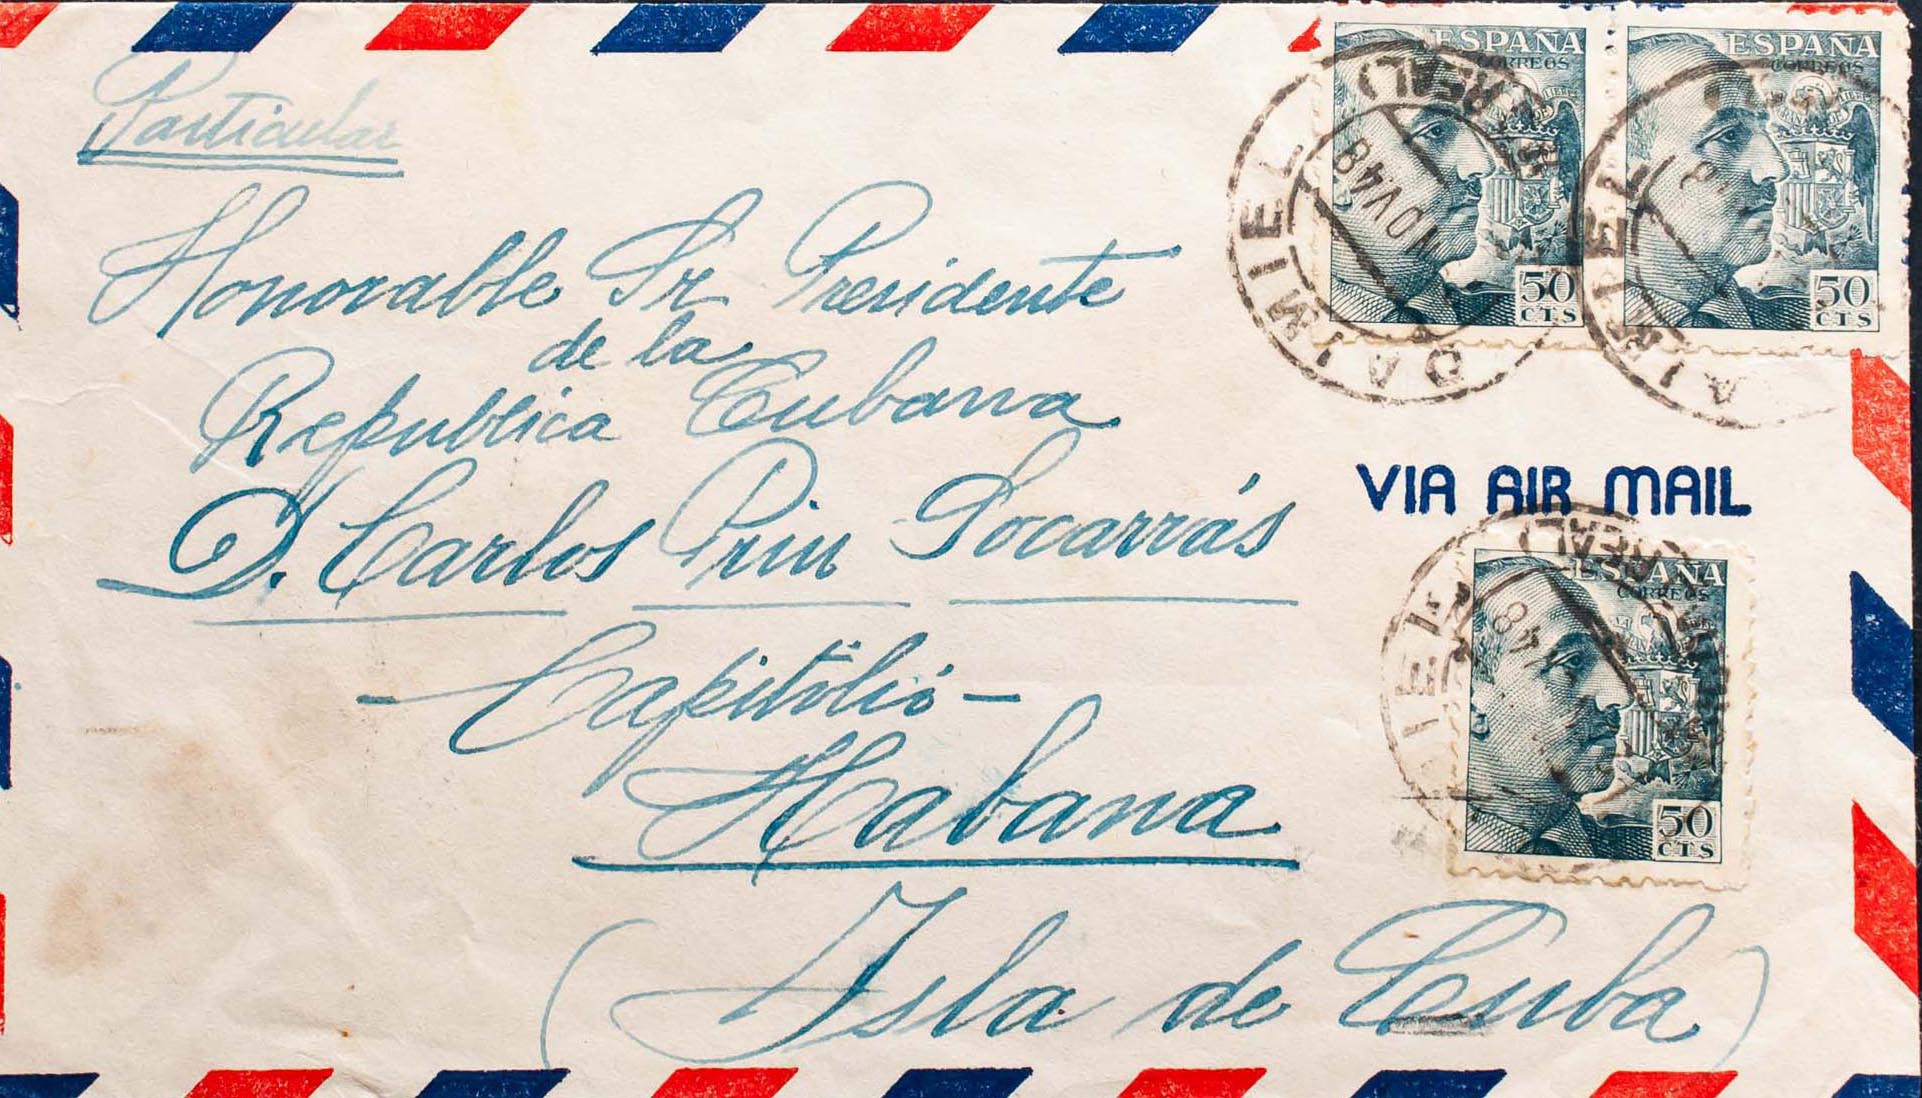 Particular
Honorable Sr Presidente
de la
Republica Cubana
D. Carlos Prin Socarrás
- Capitolio -
Habana
(Isla de Cuba)
ESPAÑA
CORREOS
50
CTS
ESPAÑA
CORREOS
50
CTS
DAIMIEL
REAL)
48
VIA AIR MAIL
ESPAÑA
CORREOS
50
CTS